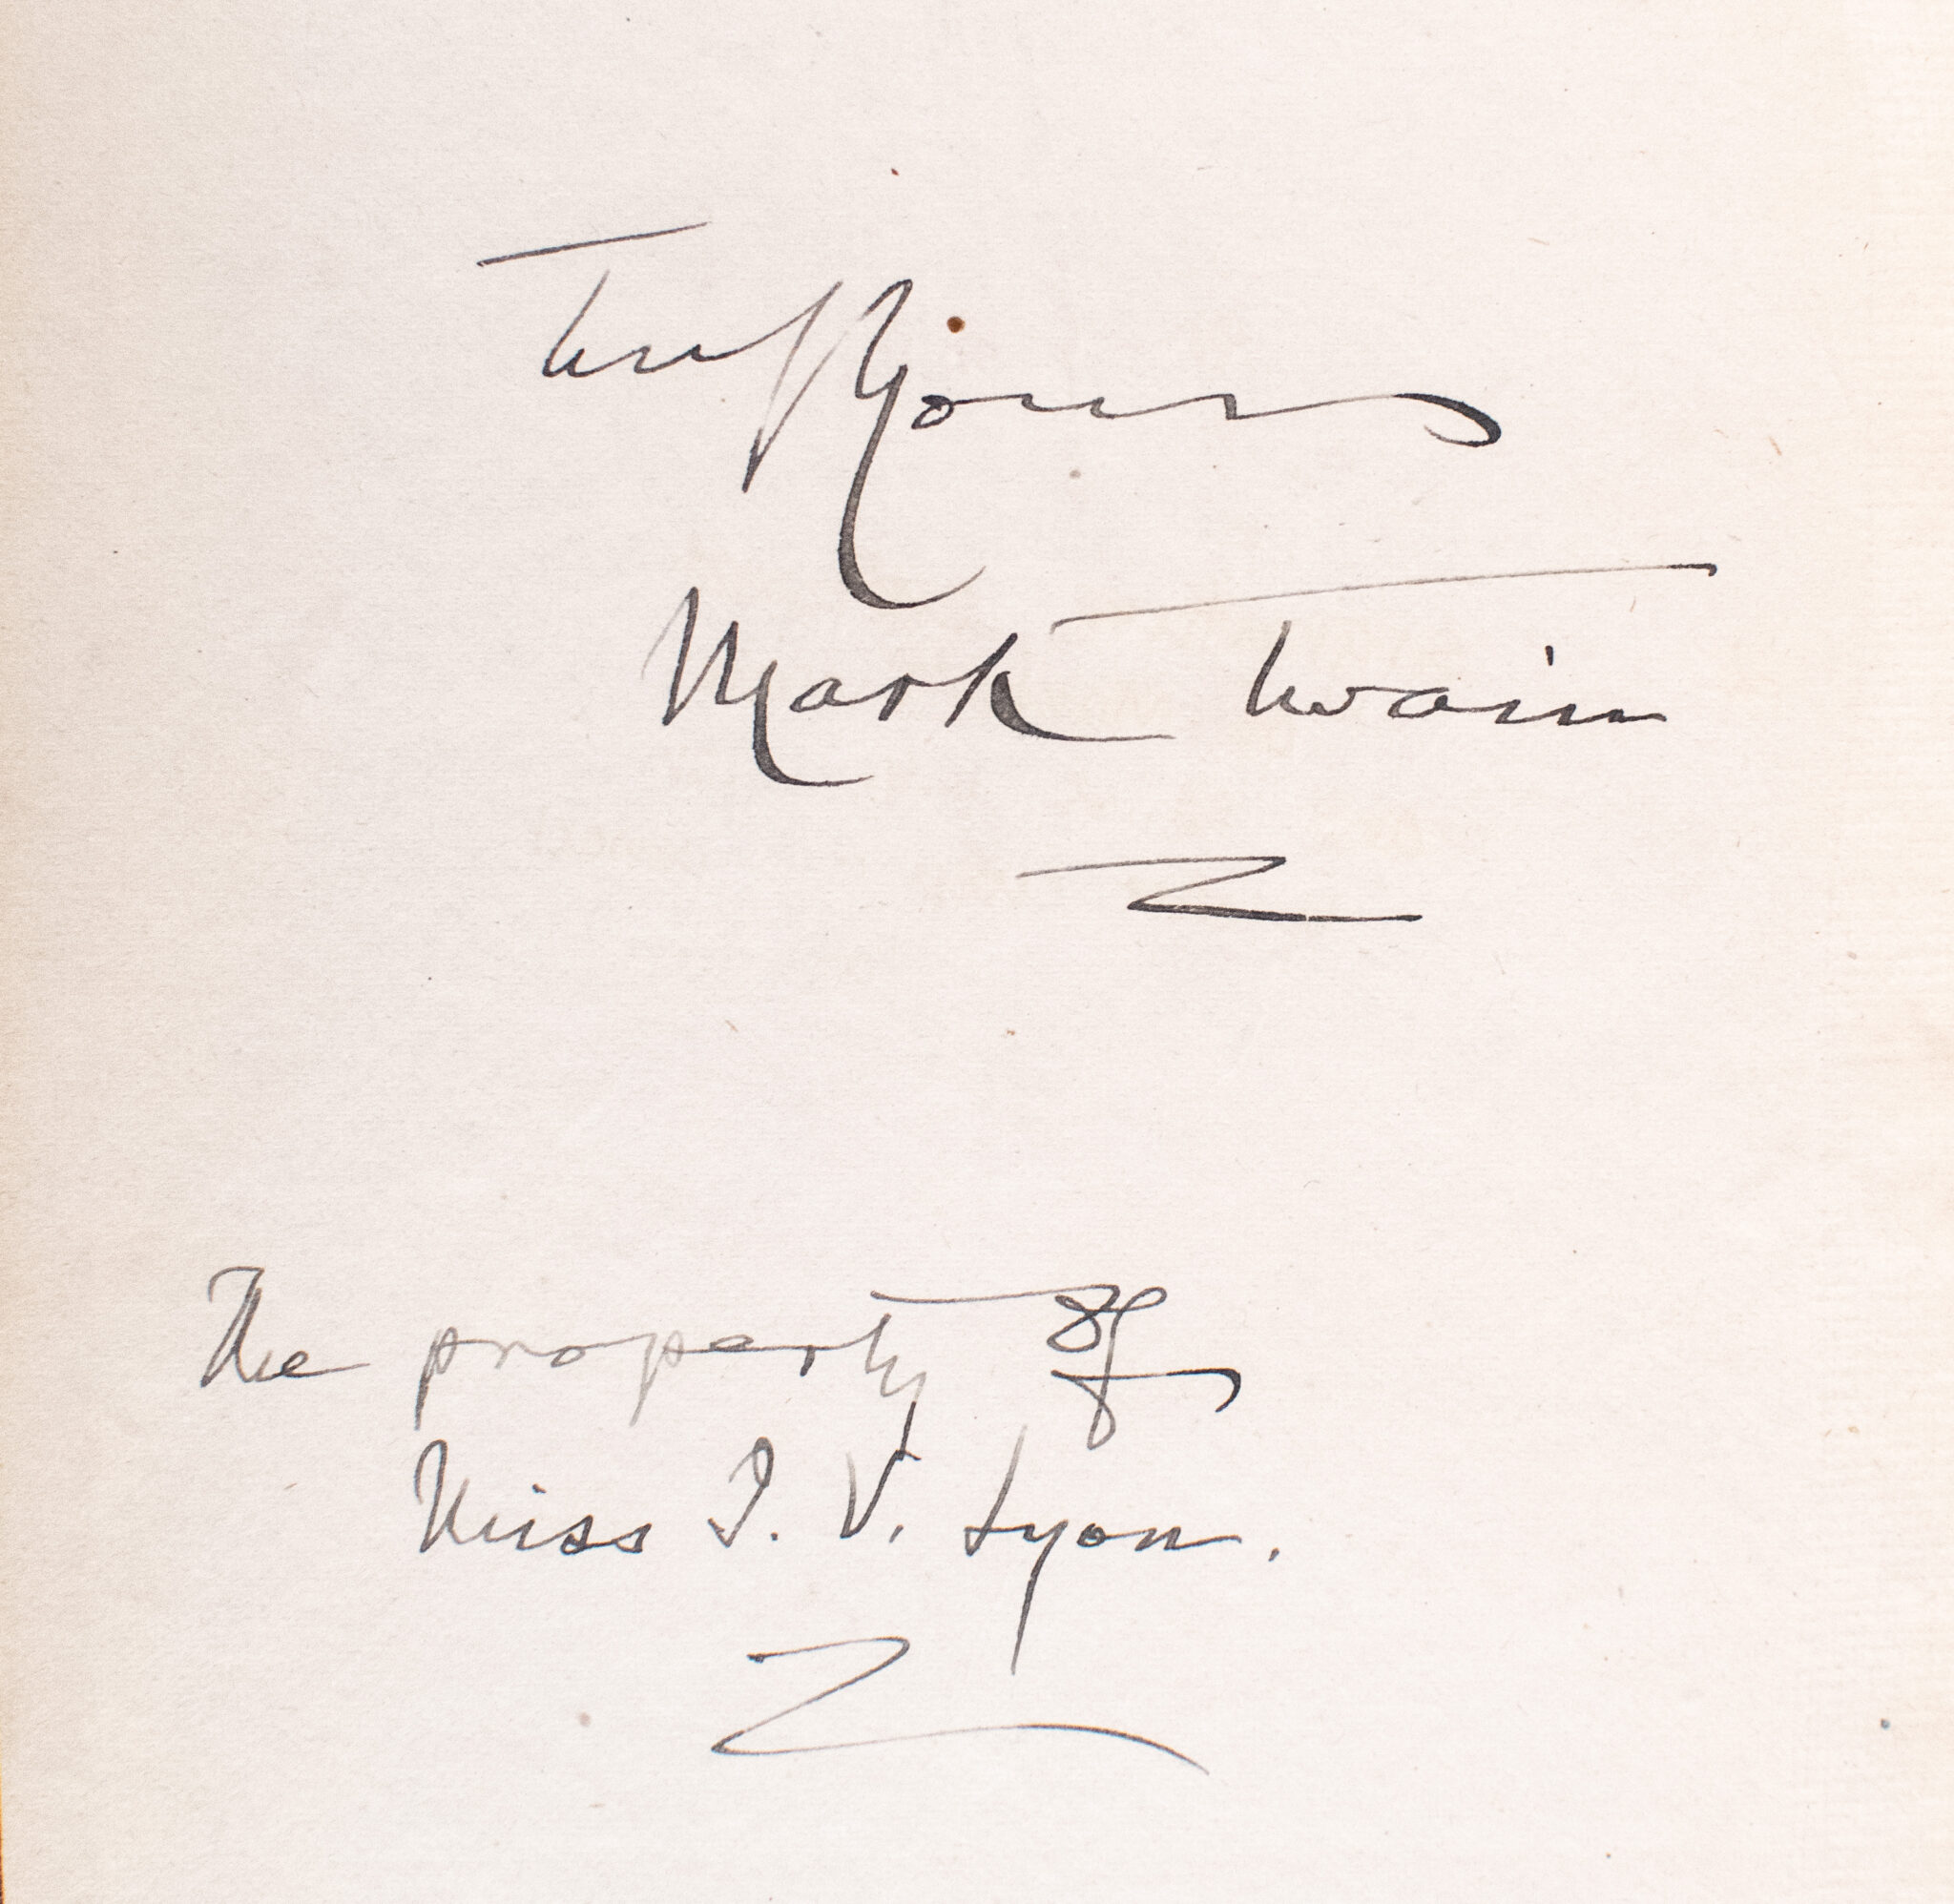 Truly Yours
Mark Twain
The property of
Miss I. V. Lyon.